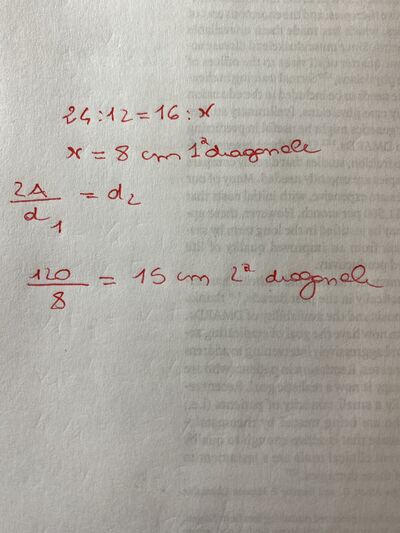 24:12=16:x
x = 8 cm 1ª diagonale
2A/d₁ = d₂
120/8 = 15 cm 2ª diagonale